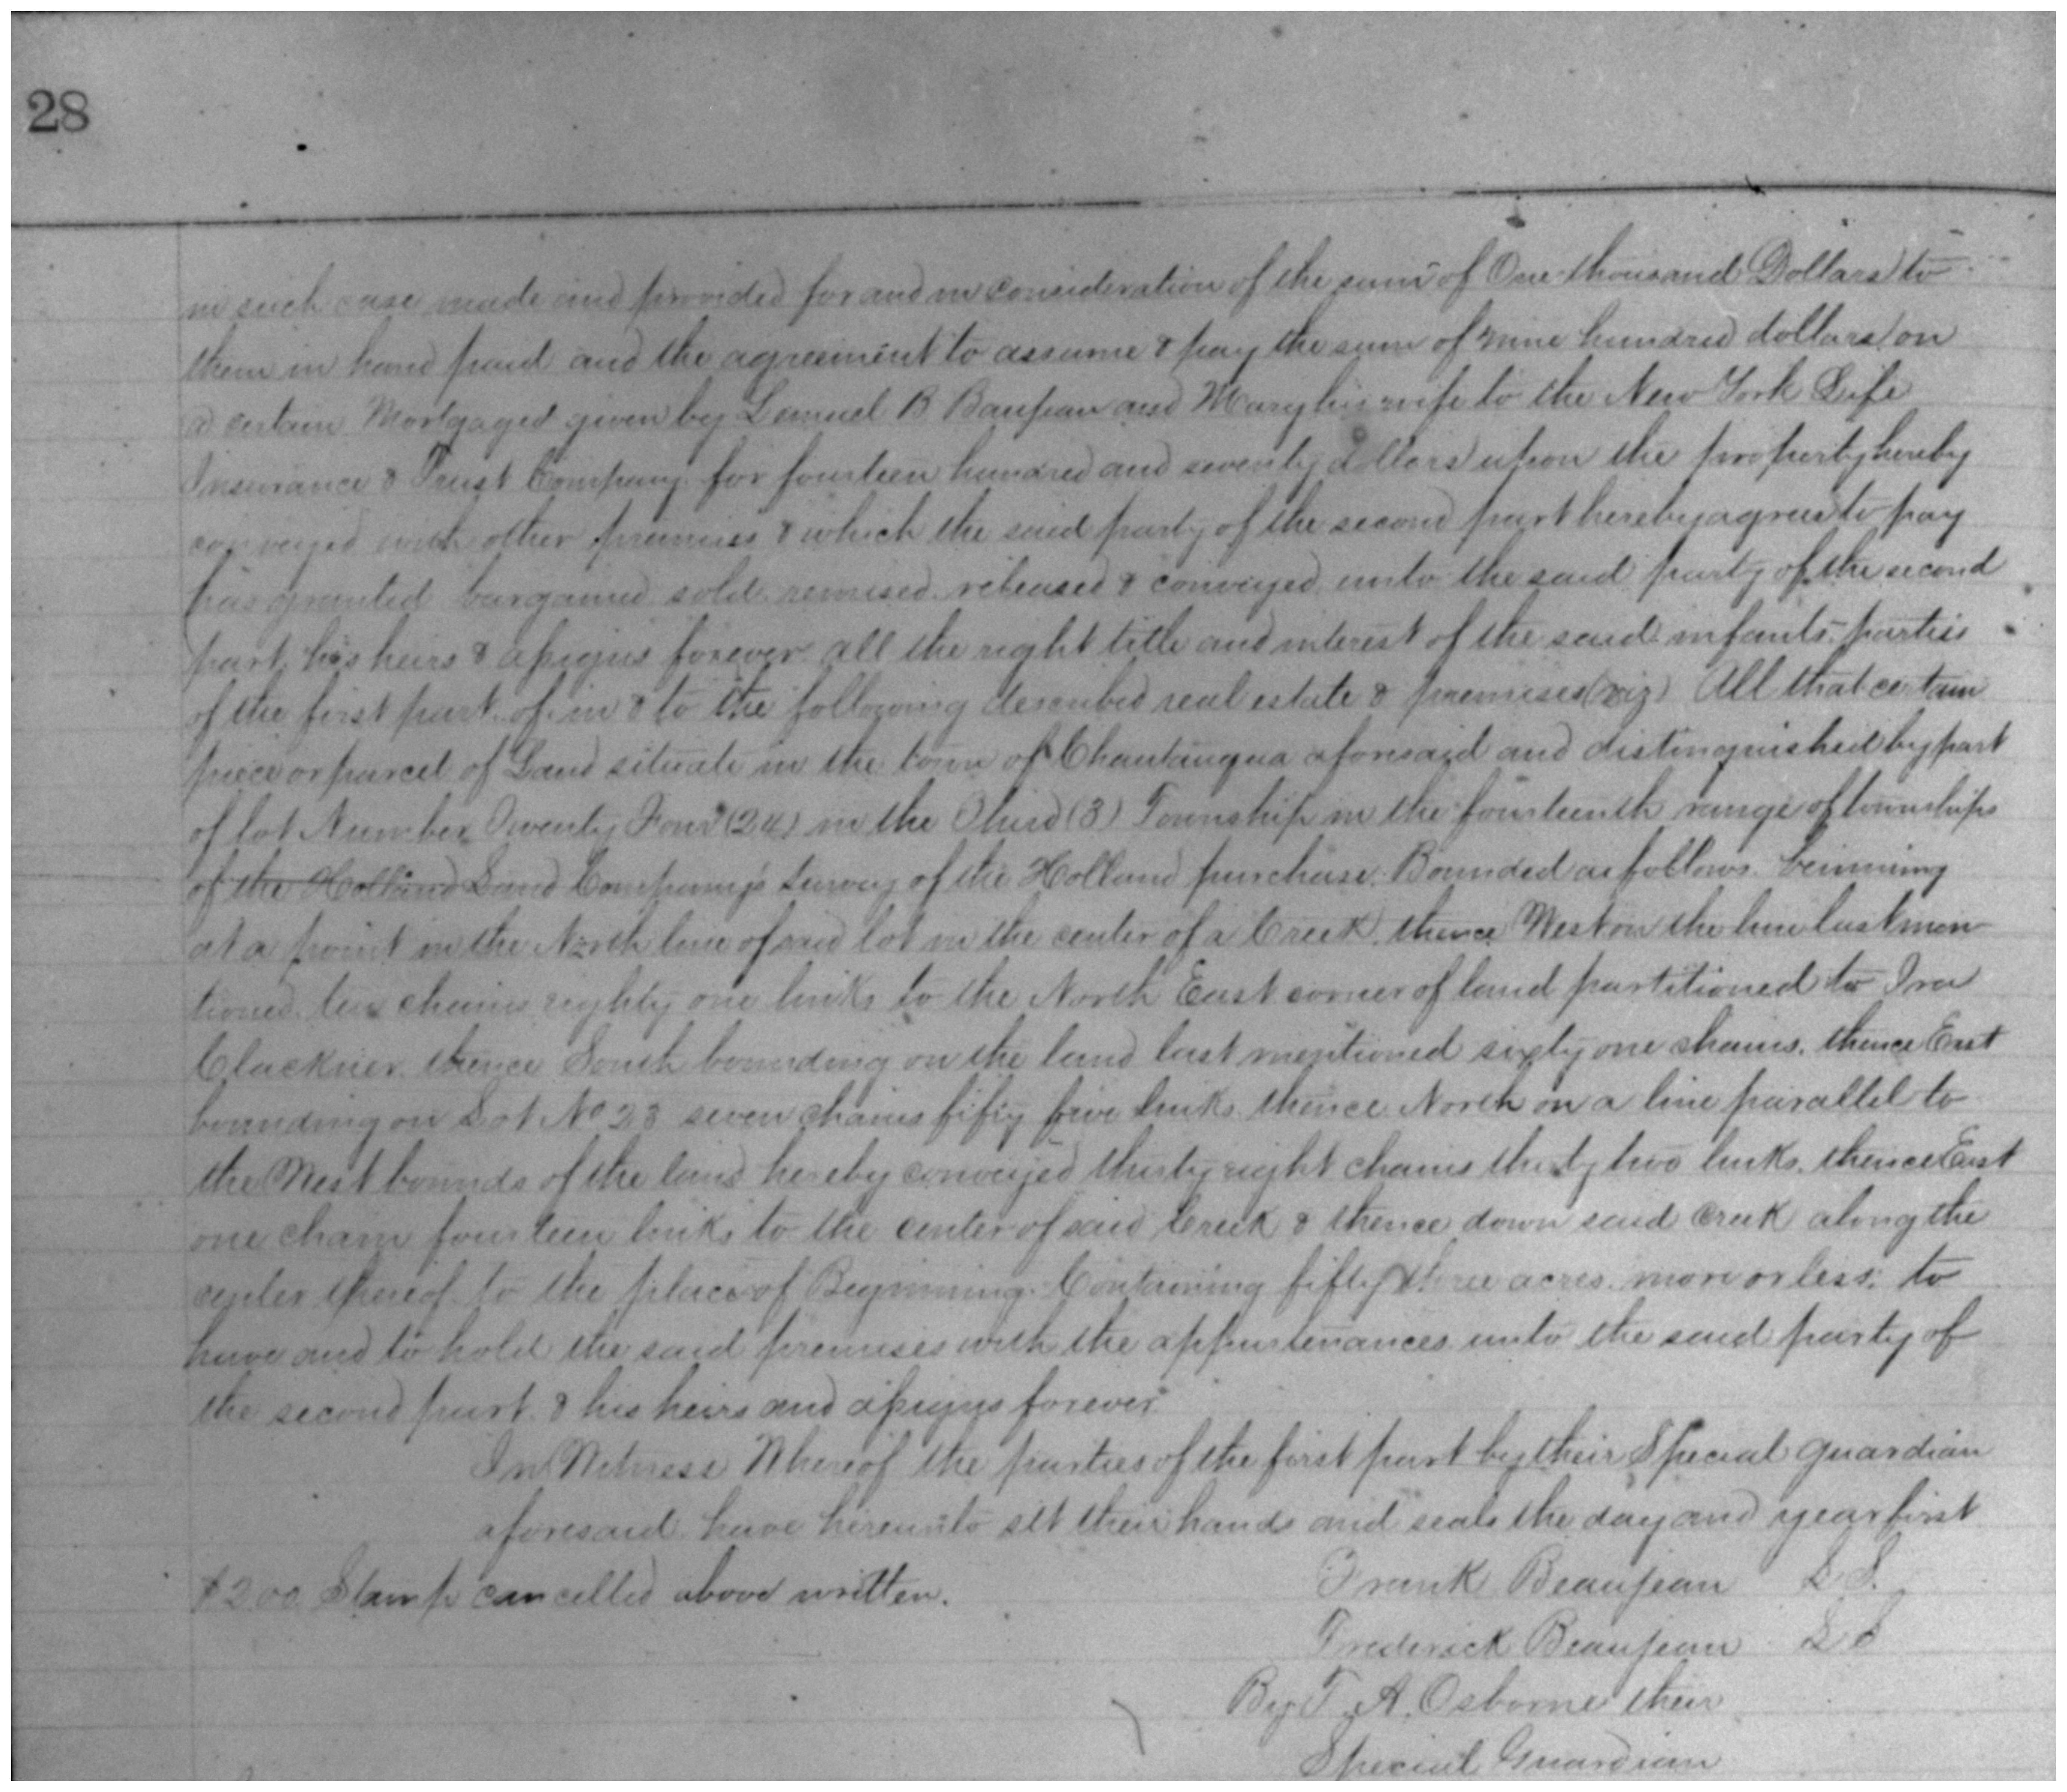 28
in such case made and provided for and in consideration of the sum of One thousand Dollars to
them in hand paid and the agreement to assume & pay the sum of nine hundred dollars on
a certain Mortgaged given by Lemuel B Baujean and Mary his wife to the New York Life
Insurance & Trust Company for fourteen hundred and seventy dollars upon the property hereby
conveyed with other premises & which the said party of the second part hereby agrees to pay
has granted bargained sold remised released & conveyed unto the said party of the second
part his heirs & assigns forever all the right title and interest of the said infants parties
of the first part of in & to the following described real estate & premises (viz) All that certain
piece or parcel of Land situate in the town of Chautauqua aforesaid and distinguished by part
of lot Number Twenty Four (24) in the Third (3) Township in the fourteenth range of townships
of the Holland Land Company's survey of the Holland purchase. Bounded as follows. beinning
at a point in the North line of said lot in the center of a Creek. thence West on the line last men
tioned ten chains eighty one links to the North East corner of land partitioned to Ira
Clackner thence South bounding on the land last mentioned sixty one chains. thence East
bounding on Lot No 23 seven chains fifty five links thence North on a line parallel to
the West bounds of the land hereby conveyed thirty eight chains thirty two links. thence East
one chain fourteen links to the center of said Creek & thence down said creek along the
center thereof to the place of Beginning. Containing fifty three acres more or less. to
have and to hold the said premises with the appurtenances unto the said party of
the second part & his heirs and assigns forever
In Witness Whereof the parties of the first part by their Special guardian
aforesaid have hereunto set their hands and seals the day and year first
$2.00 Stamp cancelled above written.
Frank Beaujean L S.
Frederick Beaujean L S
By T. A. Osborne their
Special Guardian